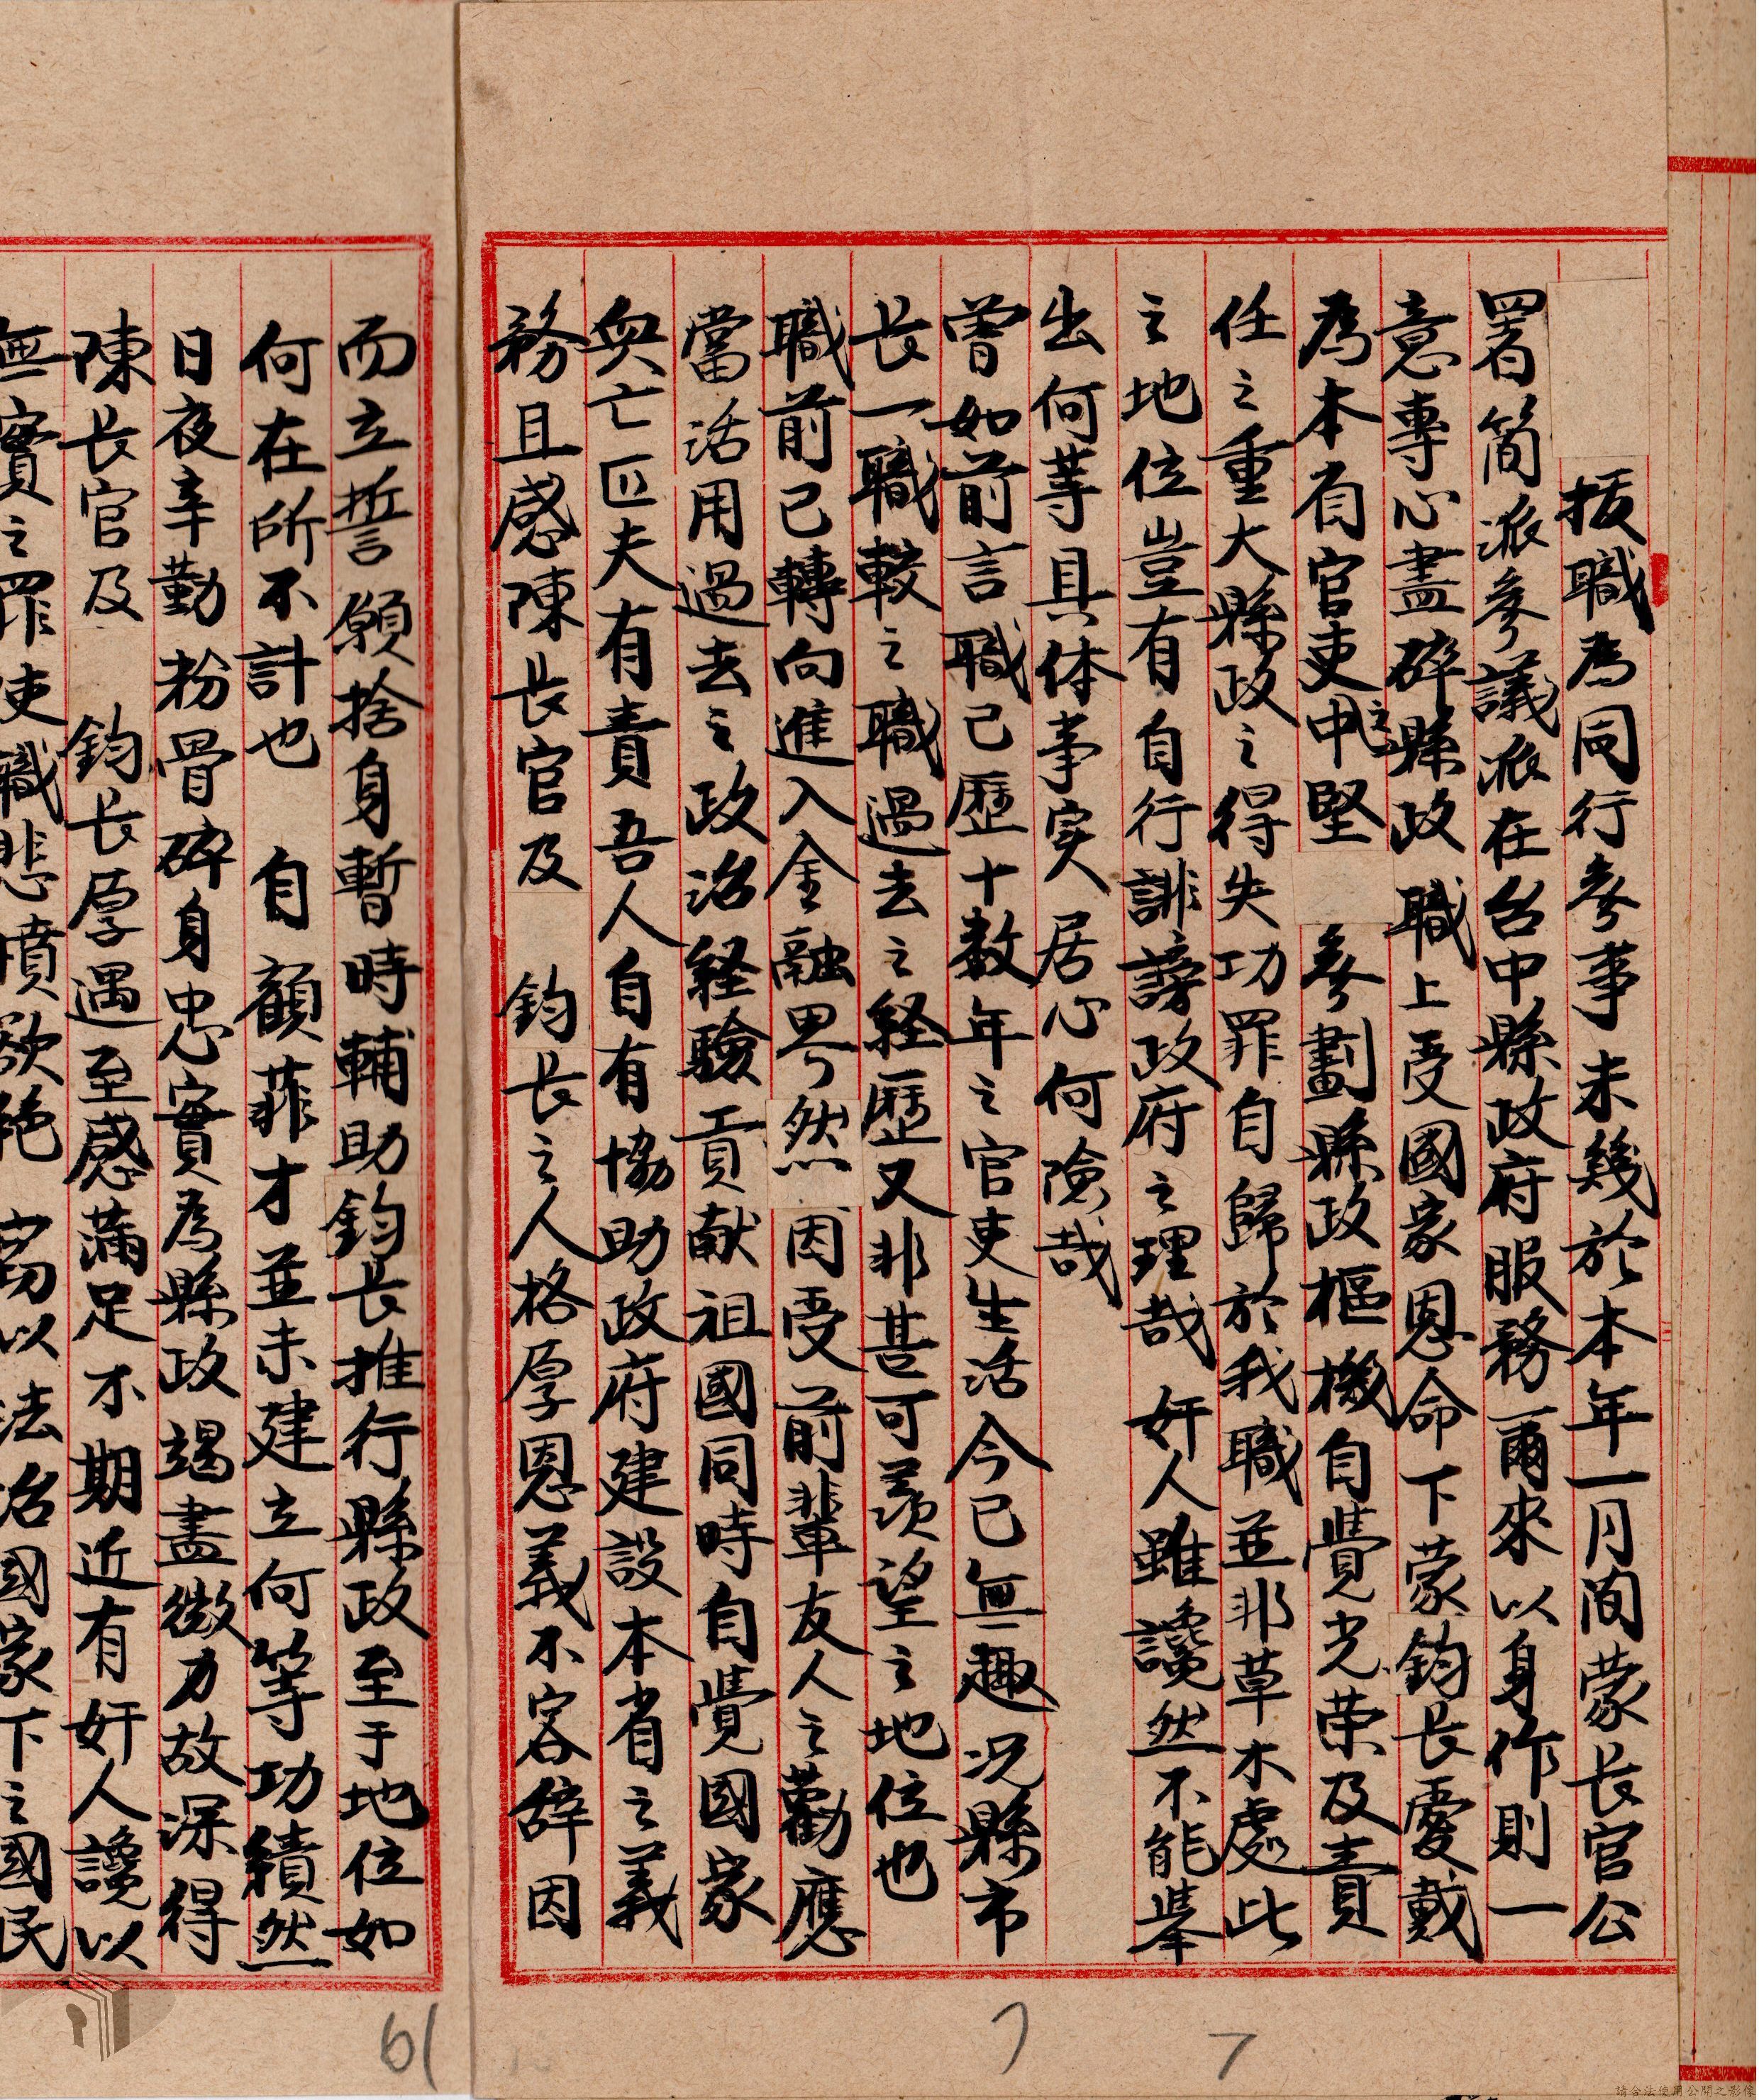 拔職為同行參事未幾於本年一月间蒙長官公
署简派參議派在台中縣政府服務爾來以身作則一
意專心盡碎縣政職上受國家恩命下蒙鈞長愛戴
為本省官吏之中堅參劃縣政樞機自覺光荣及責
任之重大縣政之得失功罪自歸於我職並非草木處此
之地位豈有自行誹謗政府之理哉奸人雖讒然不能举
出何等具体事实居心何險哉
曾如前言職已歷十数年之官吏生活今已無趣况縣市
長一職較之職過去之経歷又非甚可羨望之地位也
職前已轉向進入金融界然因受前輩友人之勸應
當活用過去之政治経驗貢献祖國同時自覺國家
興亡匹夫有責吾人自有協助政府建設本省之義
務且感陳長官及鈞長之人格厚恩義不容辞因
而立誓願捨身暫時輔助鈞長推行縣政至于地位如
何在所不計也自顧菲才並未建立何等功績然
日夜辛勤粉骨碎身忠實為縣政竭盡微力故深得
陳長官及鈞長厚遇至感滿足不期近有奸人讒以
無實之罪使職悲憤欲絶窃以法治國家下之國民
61
7
7
請合法使用公開之影像